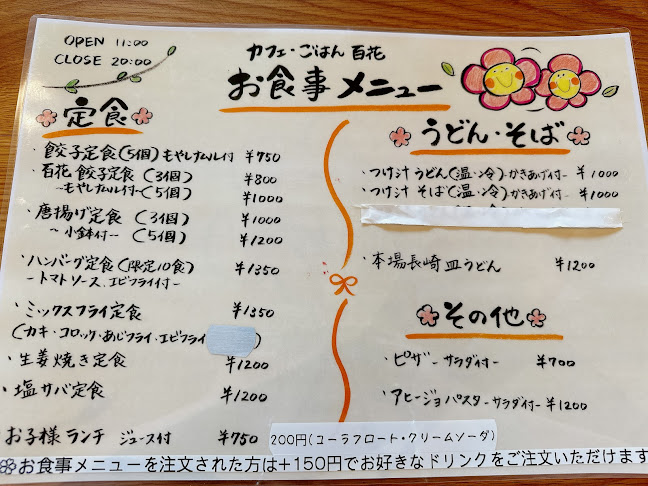 OPEN 11:00
CLOSE 20:00
カフェ・ごはん 百花
お食事メニュー
定食
・餃子定食(5個)もやしナムル付 ¥750
・百花餃子定食(3個) ¥800
〜もやしナムル付〜(5個) ¥1000
・唐揚げ定食(3個) ¥1000
〜小鉢付〜(5個) ¥1200
・ハンバーグ定食(限定10食) ¥1350
-トマトソース、エビフライ付-
・ミックスフライ定食 ¥1350
(カキ・コロッケ・あじフライ・エビフライ)
・生姜焼き定食 ¥1200
・塩サバ定食 ¥1200
お子様ランチ ジュース付 ¥750
うどん・そば
・つけ汁うどん(温・冷)かきあげ付- ¥1000
・つけ汁そば(温・冷)かきあげ付- ¥1000
・本場長崎皿うどん ¥1200
その他
・ピザ-サラダ付- ¥700
・アヒージョパスタ-サラダ付- ¥1200
200円(コーラフロート・クリームソーダ)
お食事メニューを注文された方は+150円でお好きなドリンクをご注文いただけます